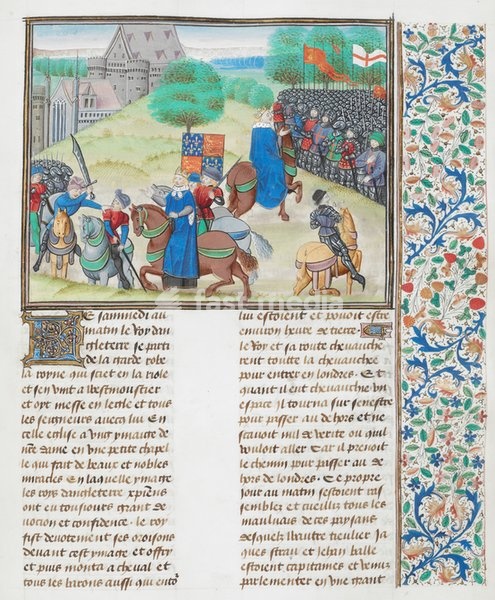 Le samedi au
matin le Roy dan
gleterre se parti
de la garde robe
la royne qui siet en la riole
et sen vint a westmoustier
et oyt messe en leglise et tous
les seigneurs avecq lui En
celle eglise a ung ymaige de
nre dame en une petite chapel
le qui fait de beaux et nobles
miracles En laquelle ymage
les roys dangleterre xpiens
ont eu tousjours grant de
uotion et confidence. le roy
fist devotement ses oroisons
devant cest ymage et offry
et puis monta a cheval et
tous les barons aussi qui ento
lui estoient et pouoit estre
environ heure de tierce
Le Roy et sa toute chevauche
rent toutte la chevauchie
pour entrer en londres. Et
quant il eut chevauchie un
espace il tourna sur senestre
pour passer au dehors et ne
scavoit mil de verite ou quil
vouloit aller Car il prenoit
le chemin pour passer au de
hors de londres. Ce propre
jour au matin sestoient ras
semblez et cueilliz tous les
mauluais de ces paysans
desquelz waultre tieulier Ja
ques strau et Jehan balle
estoient capitaines et venus
parlementer en une grant
fast media